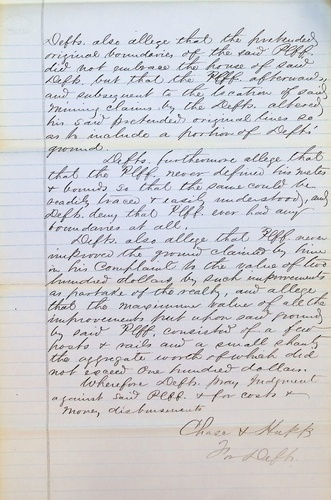 Defts. also allege that the pretended
original boundaries of the said Plff.
did not embrace the house of said
Deft. but that the Plff afterwards,
and subsequent to the location of said
mining claims by the Defts. altered
his said pretended original lines so
as to include a portion of Defts'
ground.
Defts. furthermore allege that
that the Plff. never defined his metes
& bounds so that the same could be
readily traced & easily understood, and
Defts. deny that Plff. ever had any
boundaries at all.
Defts. also allege that Plff. never
improved the ground claimed by him
in his Complaint to the value of two
hundred dollars by such improvements
as partake of the realty, and allege
that the maximum value of all the
improvements put upon said ground
by said Plff. consisted of a few
posts & rails and a small shanty
the aggregate worth of which did
not exceed One hundred dollars.
Wherefore Defts. pray Judgment
against said Plff. & for costs &
money disbursements
Chase &
For Defts.